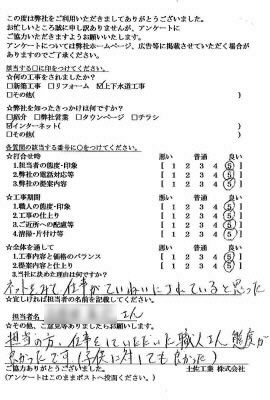 この度は弊社をご利用いただきましてありがとうございます。
お忙しいところ誠に申し訳ありませんが、アンケートに
ご協力いただきますようお願いいたします。
アンケートについては弊社ホームページ、広告等に掲載させていただく場合が
ありますのでご了承ください。
該当する□に印をつけてください。
☆何の工事をされましたか?
□新築工事 □リフォーム ☑上下水道工事
□その他( )
☆弊社を知ったきっかけは何ですか?
□紹介 □弊社営業 □タウンページ □チラシ
☑インターネット( )
□その他( )
各質問の該当する番号に○をつけてください。
☆打合せ時 悪い 普通 良い
1.担当者の態度・印象 [ 1 2 3 4 ⑤ ]
2.弊社の電話対応等 [ 1 2 3 4 ⑤ ]
3.弊社の提案内容 [ 1 2 3 4 ⑤ ]
☆工事期間 悪い 普通 良い
1.職人の態度・印象 [ 1 2 3 4 ⑤ ]
2.工事の仕上り [ 1 2 3 4 ⑤ ]
3.ご近所への配慮等 [ 1 2 3 4 ⑤ ]
4.清掃・片付け等 [ 1 2 3 4 ⑤ ]
☆全体を通して 悪い 普通 良い
1.工事内容と価格のバランス [ 1 2 3 4 ⑤ ]
2.提案内容と仕上り [ 1 2 3 4 ⑤ ]
3.当社に決めた理由は何ですか?
ネットをみて 仕事が ていねいに されていると思った
☆宜しければ担当者の名前を記載してください。
担当者名 さん
☆その他、ご意見等ありましたらお願いします。
担当の方、仕事をしていただいた職人さん 態度が
良かったです(子供に対しても良かった)
ご協力ありがとうございました。 土佐工業 株式会社
(アンケートはこのままポストへ投函ください。)